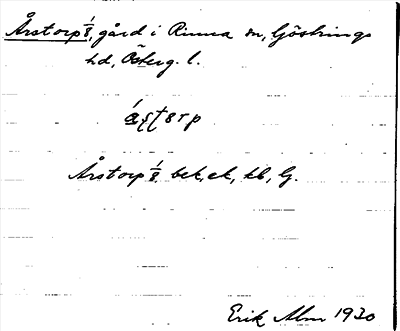 Årstorp 1/8, gård i Rinna sn, Göstrings
hd, Österg. l.
Årstorp 1/8 bek, ek, kb, G.
Erik Alm 1930